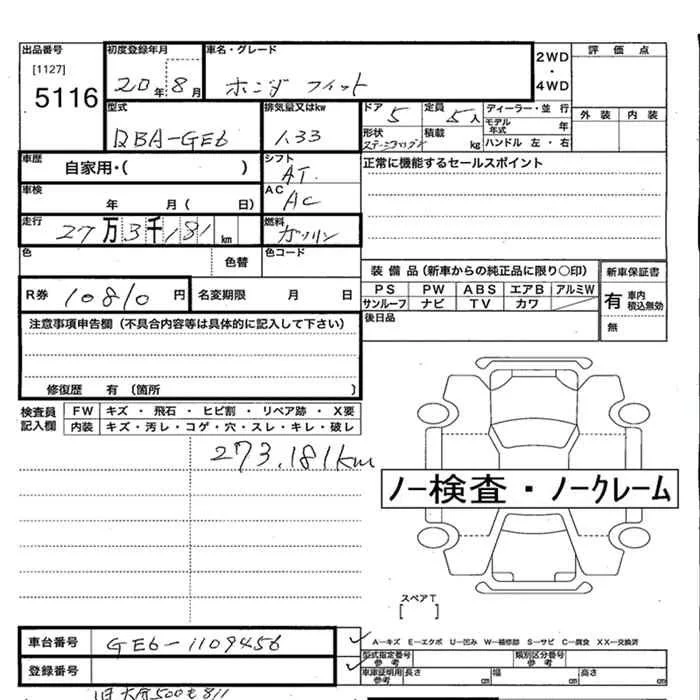 出品番号 初度登録年月 車名・グレード 2WD・4WD 評価点
[1127]
5116 20年8月 ホンダ フィット
型式 排気量又はkw ドア 定員 ディーラー・並行 外装 内装
DBA-GE6 1.33 5 5人 モデル年式 年
形状 積載 kg ハンドル 左・右
車歴 自家用・( ) シフト AT 正常に機能するセールスポイント
車検 年 月( 日) AC AC
走行 27万3千181km 燃料 ガソリン
色 色替 色コード
装備品(新車からの純正品に限り○印) 新車保証書
R券 10810円 名変期限 月 日 PS PW ABS エアB アルミW 有 車内積込無効
サンルーフ ナビ TV カワ
注意事項申告欄(不具合内容等は具体的に記入して下さい) 後日品 無
修復歴 有(箇所 )
検査員記入欄 FW キズ・飛石・ヒビ割・リペア跡・X要
内装 キズ・汚レ・コゲ・穴・スレ・キレ・破レ
273.181km
ノー検査・ノークレーム
スペアT
[ ]
車台番号 GE6-1109456 A−キズ E−エクボ U−凹み W−補修跡 S−サビ C−腐食 XX−交換済
型式指定番号 参考 類別区分番号 参考
登録番号 車庫証明用参考 長さ cm 幅 cm 高さ cm